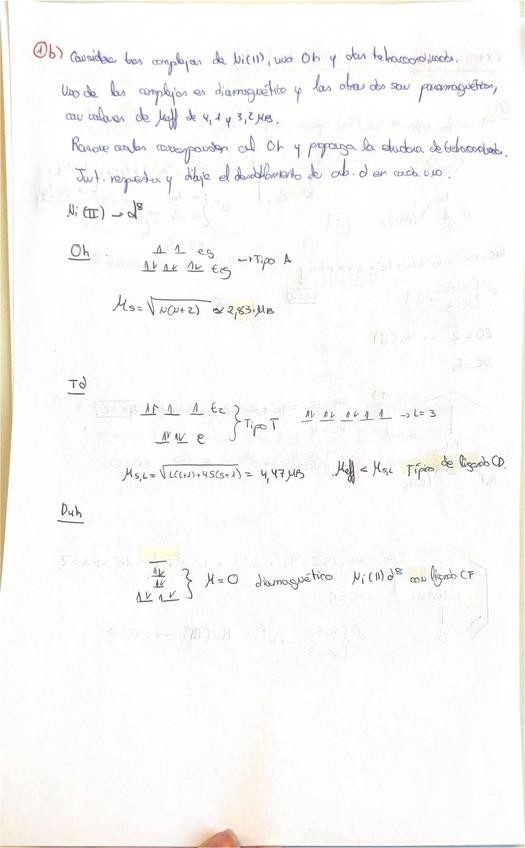 1b) Considere tres complejos de Ni(II), uno Oh y dos tetracoordinados.
Uno de los complejos es diamagnético y los otros dos son paramagnéticos,
con valores de μeff de 4,1 y 3,2 μB.
Razone cual corresponde al Oh y proponga la estructura de tetracoordinados.
Just. respuesta y dibuje el desdoblamiento de orb. d en cada uno.
Ni(II) → d⁸
Oh
1 1 eg → Tipo A
1↓ 1↓ 1↓ t2g
μs = √N(N+2) ≈ 2,83 μB
Td
t2
e } Tipo T → L = 3
μS,L = √L(L+1)+4S(S+1) = 4,47 μB μeff < μS,L Típico de ligando CD.
} μ = 0 diamagnético Ni(II) d⁸ con ligando CF